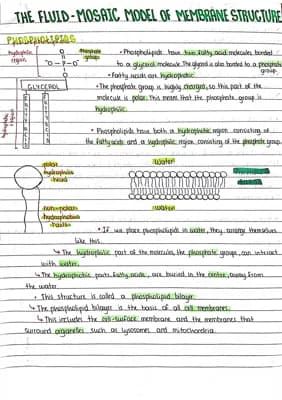 THE FLUID-MOSAIC MODEL OF MEMBRANE STRUCTURE
PHOSPHOLIPIDS
hydrophilic region
O
phosphate group
-O-P-O-
O
GLYCEROL
hydrophobic region
FATTY ACID
FATTY ACID
• Phospholipids have two fatty acid molecules bonded
to a glycerol molecule. The glycerol is also bonded to a phosphate
group.
• Fatty acids are hydrophobic.
• The phosphate group is highly charged, so this part of the
molecule is polar. This means that the phosphate group is
hydrophilic.
• Phospholipids have both a hydrophobic region consisting of
the fatty acids and a hydrophilic region, consisting of the phosphate group.
polar
hydrophilic
head
non-polar
hydrophobic
tails
water
water
• If we place phospholipids in water, they arrange themselves
like this.
↳ The hydrophilic part of the molecules, the phosphate groups, can interact
with water.
↳ The hydrophobic parts, fatty acids, are buried in the center, away from
the water.
• This structure is called a phospholipid bilayer.
↳ The phospholipid bilayer is the basis of all cell membranes.
↳ This includes the cell-surface membrane and the membranes that
surround organelles such as lysosomes and mitochondria.